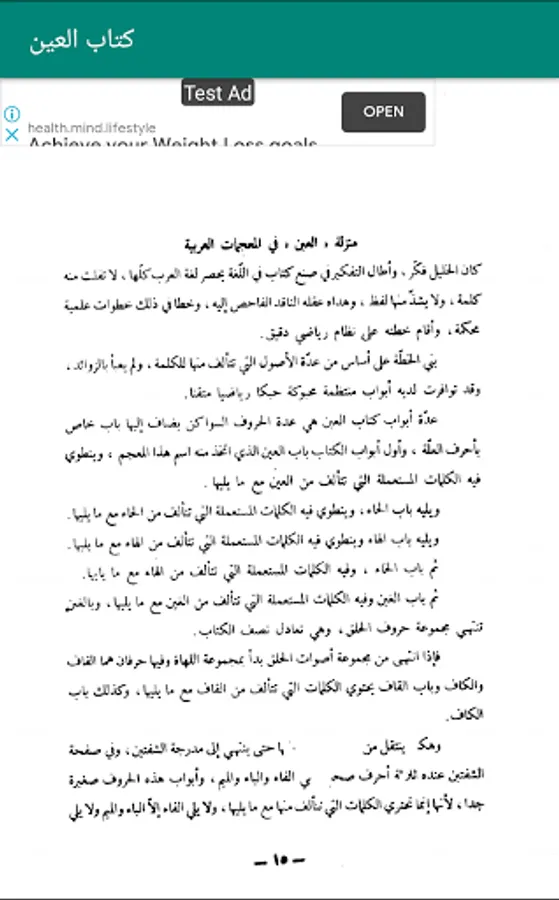 كتاب العين
Test Ad
OPEN
health.mind.lifestyle
Achieve your Weight Loss goals
منزلة « العين » في المعجمات العربية
كان الخليل فكّر ، وأطال التفكير في صنع كتاب في اللّغة يحصر لغة العرب كلّها ، لا تفلت منه
كلمة ، ولا يشذّ منها لفظ ، وهداه عقله الناقد الفاحص إليه ، وخطا في ذلك خطوات علمية
محكمة ، وأقام خطته على نظام رياضي دقيق .
بنى الخطّة على أساس من عدّة الأصول التي تتألف منها للكلمة ، ولم يعبأ بالزوائد ،
وقد توافرت لديه أبواب منتظمة محبوكة حبكا رياضيا متقنا.
عدّة أبواب كتاب العين هي عدة الحروف السواكن يضاف إليها باب خاص
بأحرف العلّة ، وأول أبواب الكتاب باب العين الذي اتخذ منه اسم هذا المعجم ، وينطوي
فيه الكلمات المستعملة التي تتألف من العين مع ما يليها .
ويليه باب الحاء ، وينطوي فيه الكلمات المستعملة التي تتألف من الحاء مع ما يليها .
ويليه باب الهاء وينطوي فيه الكلمات المستعملة التي تتألف من الهاء مع ما يليها .
ثم باب الخاء ، وفيه الكلمات المستعملة التي تتألف من الهاء مع ما يليها .
ثم باب الغين وفيه الكلمات المستعملة التي تتألف من الغين مع ما يليها ، وبالغين
تنتهي مجموعة حروف الحلق ، وهي تعادل نصف الكتاب .
فإذا انتهى من مجموعة أصوات الحلق بدأ بمجموعة اللهاة وفيها حرفان هما القاف
والكاف وباب القاف يحتوي الكلمات التي تتألف من القاف مع ما يليها ، وكذلك باب
الكاف.
ينتقل من حتى ينتهي إلى مدرجة الشفتين ، وفي صفحة
الشفتين عنده أحرف الفاء والباء والميم ، وأبواب هذه الحروف صغيرة
جدا ، لأنها إنما تحتوي الكلمات التي تتألف منها مع ما يليها ، ولا يلي الفاء إلاّ الباء والميم ولا يلي
— ١٥ —